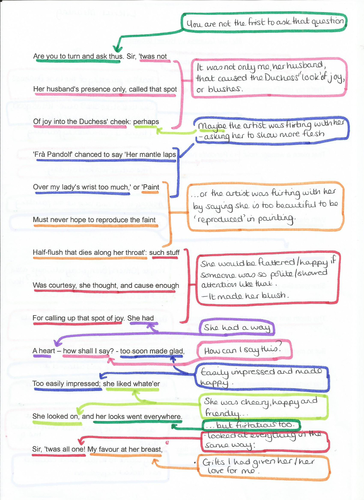 You are not the frist to ask that question
Are you to turn and ask thus. Sir, 'twas not
It was not only me, her husband,
that caused the Duchess' look of joy,
or blushes.
Her husband's presence only, called that spot
Of joy into the Duchess' cheek: perhaps
Maybe the artist was flirting with her
- asking her to show more flesh
'Frà Pandolf' chanced to say 'Her mantle laps
Over my lady's wrist too much,' or 'Paint
...or the artist was flirting with her
by saying she is too beautiful to be
'reproduced' in painting.
Must never hope to reproduce the faint
Half-flush that dies along her throat': such stuff
She would be flattered/happy if
someone was so polite/showed
attention like that.
- It made her blush.
Was courtesy, she thought, and cause enough
For calling up that spot of joy. She had
She had a way
A heart – how shall I say? - too soon made glad,
How can I say this?
Easily impressed and made
happy.
Too easily impressed; she liked whate'er
She was cheery, happy and
friendly...
She looked on, and her looks went everywhere.
...but flirtatious too
- looked at everything in the
same way:
Sir, 'twas all one! My favour at her breast,
Gifts I had given her/her
love for me